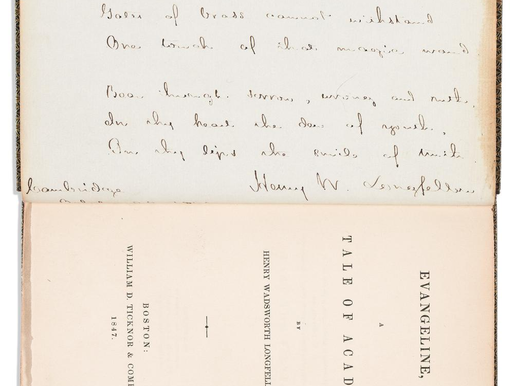 Gates of brass cannot withstand
One touch of that magic wand
Bear through sorrow, wrong and ruth,
In thy heart the dew of youth,
On thy lips the smile of truth.
Henry W. Longfellow
Cambridge
EVANGELINE,
A
TALE OF ACAD
BY
HENRY WADSWORTH LONGFELL
BOSTON:
WILLIAM D. TICKNOR & COMP
1847.